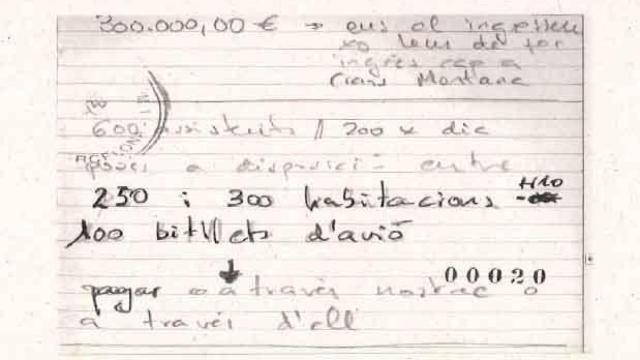 300.000,00 € → ens el ingressen
xo hem de fer
ingrés cap a
Crans Montana
600 assistents // 200 x dia
a disposició entre
250 i 300 habitacions H10
100 bitllets d'avió
00020
pagar o a través nostre o
a través d'ell